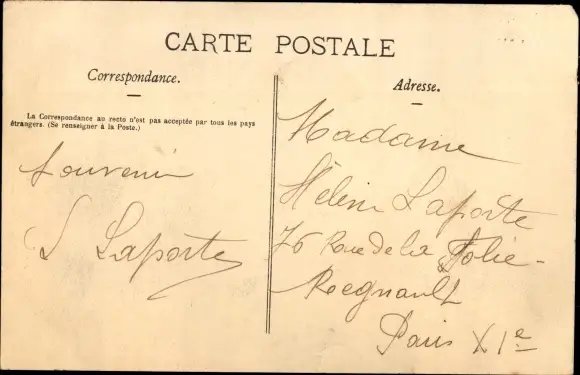 CARTE POSTALE
Correspondance.
La Correspondance au recto n'est pas acceptée par tous les pays
étrangers. (Se renseigner à la Poste.)
Souvenir
L Laporte
Adresse.
Madame
Hélène Laporte
76 Rue de la Folie-
Regnault
Paris XIe